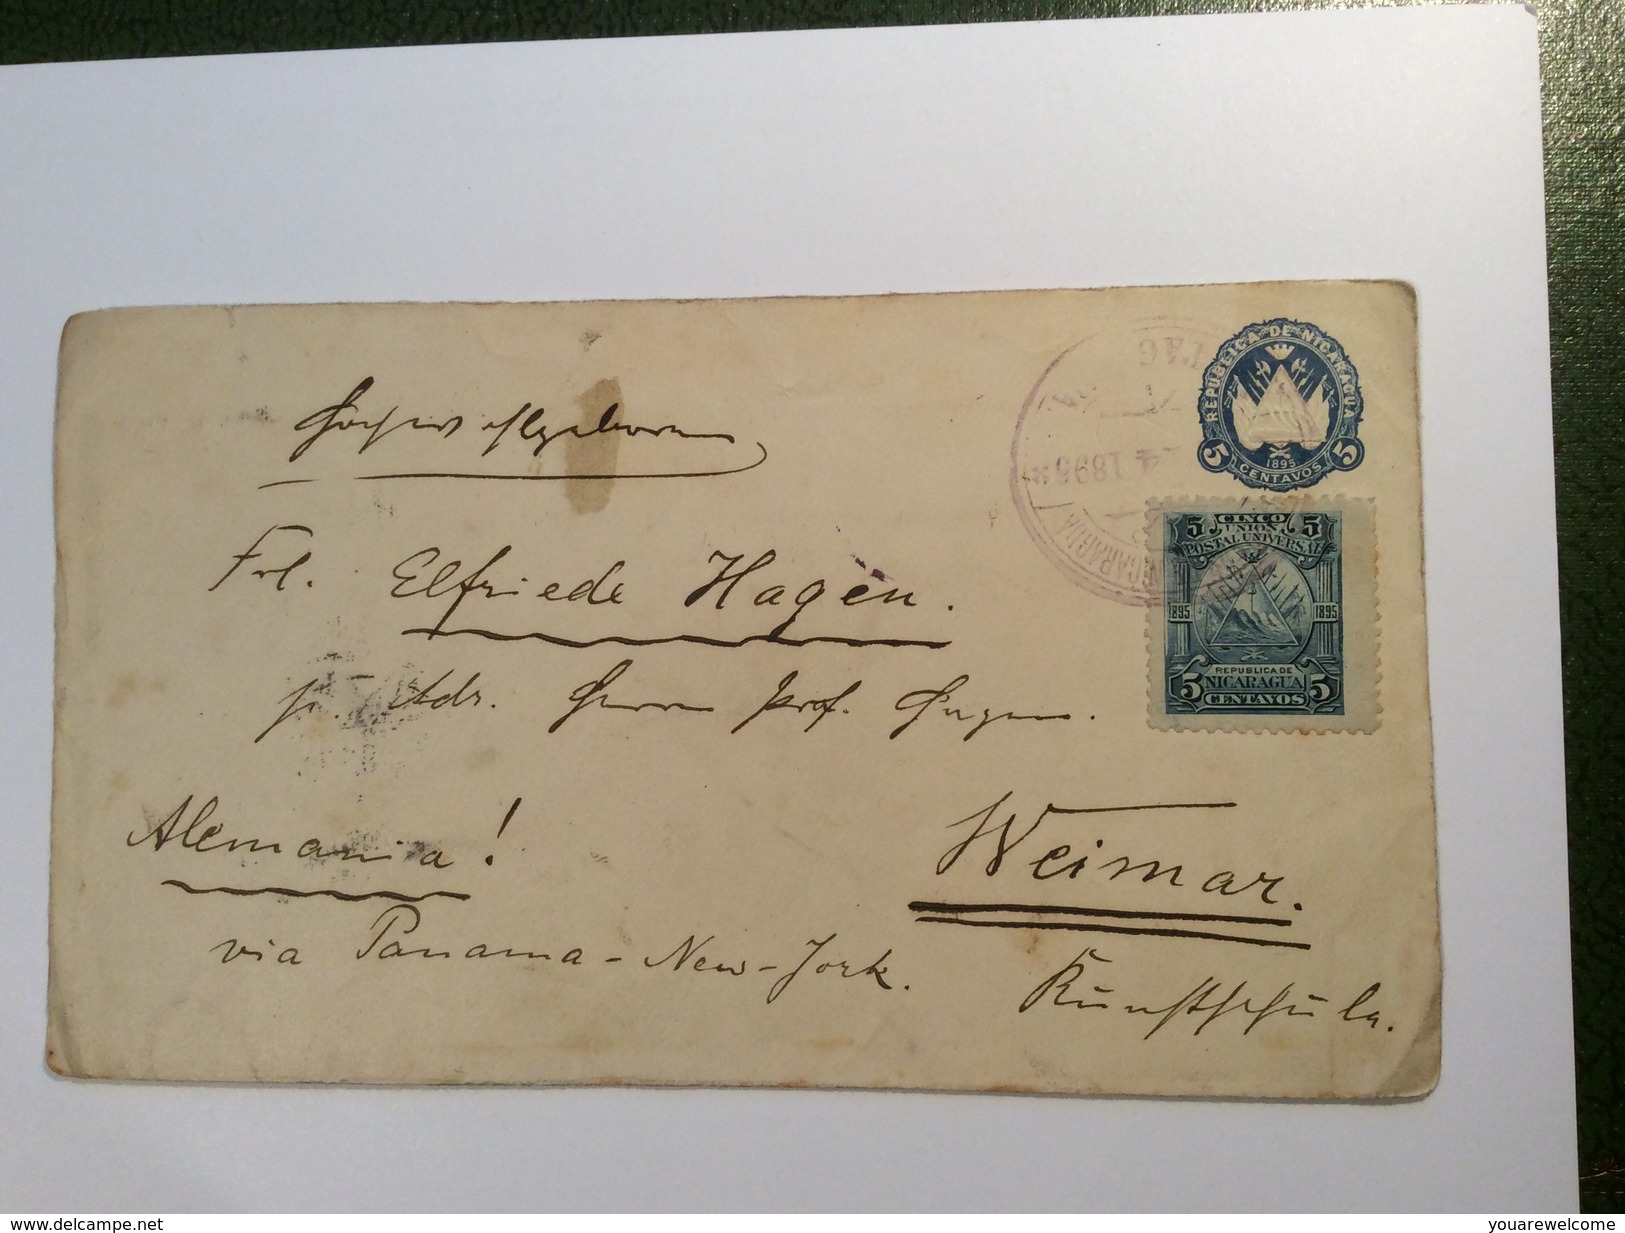 REPUBLICA DE NICARAGUA
5 5
1895
CENTAVOS
4 1895
5 CINCO 5
UNION
POSTAL UNIVERSAL
1895 1895
REPUBLICA DE
5 NICARAGUA 5
CENTAVOS
Hochwohlgeboren
Frl. Elfriede Hagen.
p. Adr. Herrn Prof. Hagen.
Alemania!
Weimar.
via Panama-New-York.
Kunstschule.
http://www.delcampe.net
youarewelcome